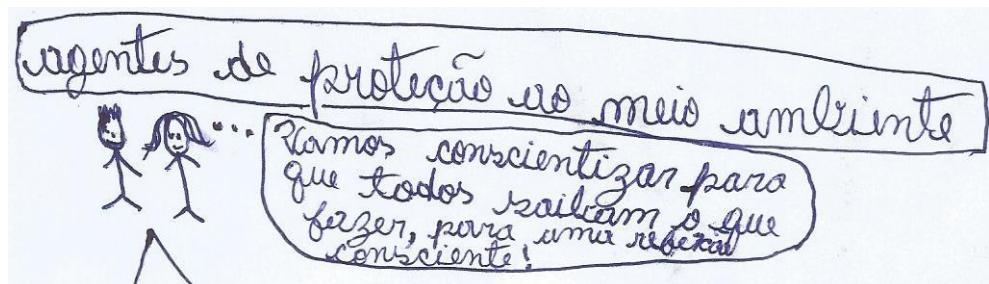 agentes de proteção ao meio ambiente
Vamos conscientizar para
que todos saibam o que
fazer, para uma
consciente!